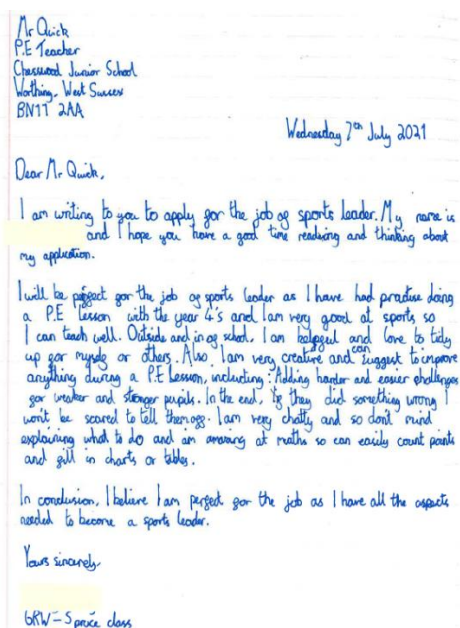 Mr Quick
P.E Teacher
Chesswood Junior School
Worthing, West Sussex
BN11 2AA
Wednesday 7th July 2021
Dear Mr Quick,
I am writing to you to apply for the job of sports leader. My name is
and I hope you have a good time reading and thinking about
my application.
I will be perfect for the job of sports leader as I have had practise doing
a P.E lesson with the year 4's and I am very good at sports so
I can teach well. Outside and in of school. I am helpful and love to tidy
up for myself or others. Also I am very creative and so can suggest to improve
anything during a P.E lesson, including: Adding harder and easier challenges
for weaker and stronger pupils. In the end, if they did something wrong I
wont be scared to tell them off. I am very chatty and so don't mind
explaining what to do and am amazing at maths so can easily count points
and fill in charts or tables.
In conclusion, I believe I am perfect for the job as I have all the aspects
needed to become a sports leader.
Yours sincerely,
6RW = Spruce class